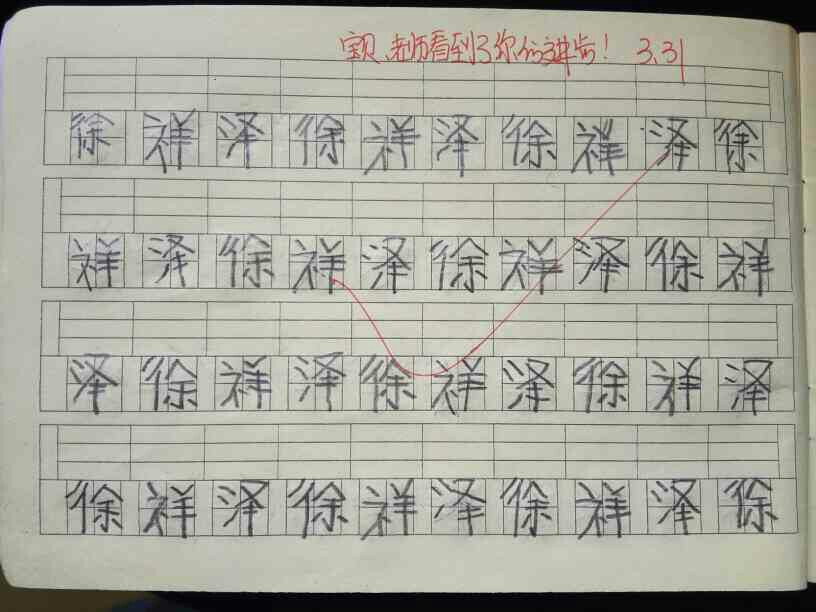 宝贝、老师看到了你的进步！ 3.31
徐祥泽徐祥泽徐祥泽徐
祥泽徐祥泽徐祥泽徐祥
泽徐祥泽徐祥泽徐祥泽
徐祥泽徐祥泽徐祥泽徐